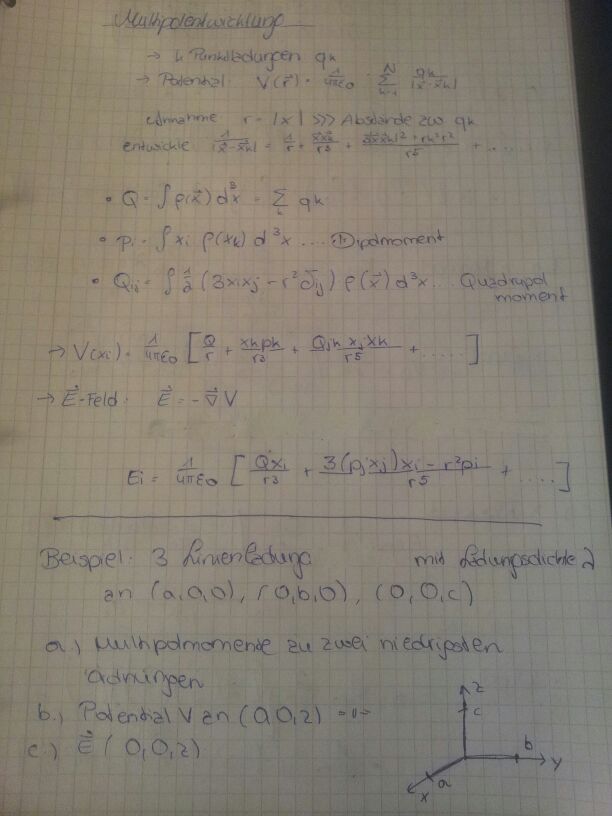 Multipolentwicklung
→ 4 Punktladungen qk
→ Potential V(r⃗) = 1/4πε0 · Σ(k=1..N) qk/|x⃗-x⃗k|
Annahme r = |x| >>> Abstände zu qk
entwickle 1/|x⃗-x⃗k| = 1/r + x⃗x⃗k/r³ + / r⁵ + .....
• Q = ∫ρ(x⃗) d³x = Σk qk
• pi = ∫ xi ρ(xk) d³x .... Dipolmoment
• Qij = ∫ 1/2 (3xixj - r²δij) ρ(x⃗) d³x ... Quadrupol
moment
→ V(xi) = 1/4πε0 [Q/r + xkpk/r³ + Qjk xj xk/r⁵ + .....]
→ E⃗-Feld: E⃗ = -∇⃗V
Ei = 1/4πε0 [Qxi/r³ + 3(pjxj)xi - r²pi/r⁵ + .....]
Beispiel: 3 Linienladung mit Ladungsdichte λ
an (a,0,0), (0,b,0), (0,0,c)
a.) Multipolmomente zu zwei niedrigsten
Ordnungen
b.) Potential V an (0,0,z) -"-
c.) E⃗ (0,0,z)
z
c
b
y
a
x